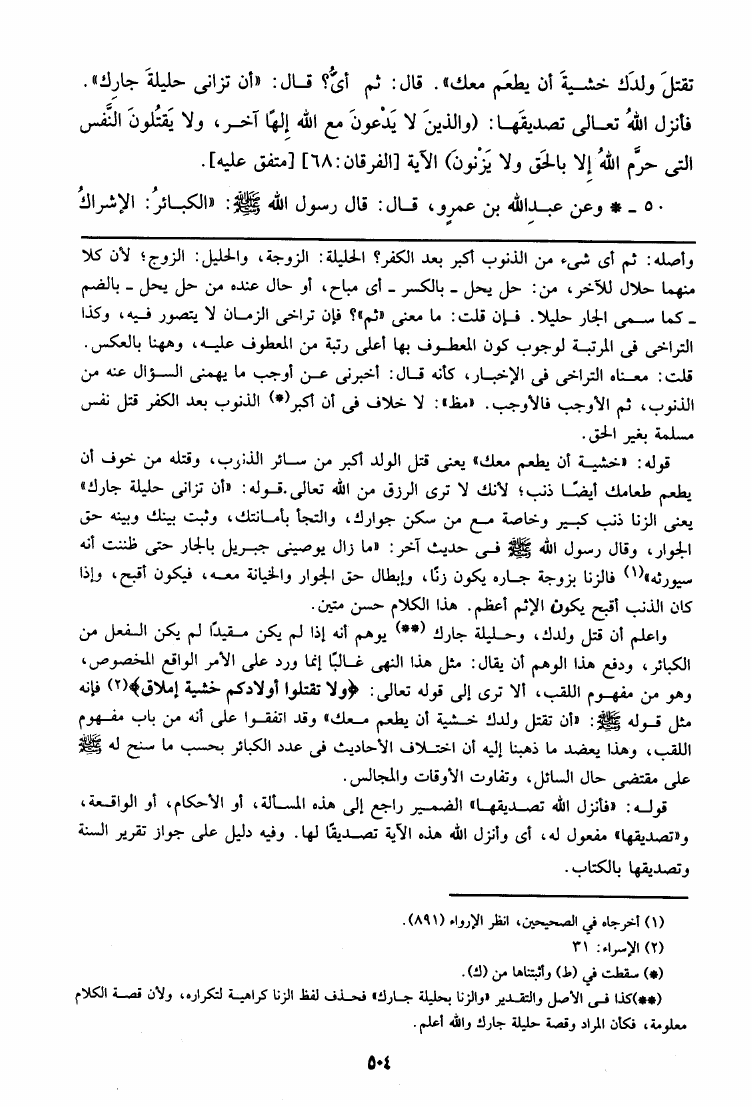 تقتلَ ولدَك خشـيةَ أن يطعَم معك». قال: ثم أىٌّ؟ قـال: «أن تزانى حليلةَ جارِك».
فأنزل اللهُ تعـالى تصديقَهـا: (والذينَ لا يَدْعونَ مع الله إلهًا آخـر، ولا يَقتُلونَ النَّفس
التى حرَّم اللهُ إلا بالحَق ولا يَزْنونَ) الآية [الفرقان:٦٨] [متفق عليه].
٥٠ ـ * وعن عبـدِالله بن عمرٍو، قـال: قال رسول الله ﷺ: «الكبـائرُ: الإشراكُ
وأصله: ثم أى شىء من الذنوب أكبر بعد الكفر؟ الحليلة: الزوجة، والحليل: الزوج؛ لأن كلا
منهما حلال للآخر، من: حل يحل ـ بالكسر ـ أى مباح، أو حال عنده من حل يحل ـ بالضم
ـ كما سـمى الجار حليلا. فـإن قلت: ما معنى «ثم»؟ فإن تراخى الزمـان لا يتصور فيـه، وكذا
التراخى فى المرتبـة لوجوب كون المعطـوف بها أعلى رتبة من المعطوف عليـه، وههنا بالعكس.
قلت: معـناه التراخى فى الإخبـار، كأنه قـال: أخبرنى عـن أوجب ما يهمنى السـؤال عنه من
الذنوب، ثم الأوجب فالأوجب. «مظ»: لا خلاف فى أن أكبر(*) الذنوب بعد الكفر قتل نفس
مسلمة بغير الحق.
قوله: «خشيـة أن يطعم معك» يعنى قتل الولد أكبر من سـائر الذنرب، وقتله من خوف أن
يطعم طعامك أيضًـا ذنب؛ لأنك لا ترى الرزق من الله تعالى.قـوله: «أن تزانى حليلة جارك»
يعنى الزنا ذنب كبـير وخاصة مـع من سكن جوارك، والتجأ بأمـانتك، وثبت بينك وبينه حق
الجوار، وقال رسول الله ﷺ فـى حديث آخر: «ما زال يوصينى جبـريل بالجار حتى ظننت أنه
سيورثه»(١) فالزنا بزوجة جـاره يكون زنًا، وإبطال حق الجوار والخيانة معـه، فيكون أقبح، وإذا
كان الذنب أقبح يكون الإثم أعظم. هذا الكلام حسن متين.
واعلم أن قتل ولدك، وحـليلة جارك (**) يوهم أنه إذا لم يكن مـقيدًا لم يكن الـفعل من
الكبائر، ودفع هذا الوهم أن يقال: مثل هذا النهى غـالبًا إنما ورد على الأمر الواقع المخصوص،
وهو من مفهوم اللقب، ألا ترى إلى قوله تعالى: ﴿ولا تقتلوا أولادكم خشية إملاق﴾(٢) فإنه
مثل قـوله ﷺ: «أن تقتل ولدك خـشية أن يطعم مـعك» وقد اتفقـوا على أنه من باب مفـهوم
اللقب، وهذا يعضد ما ذهبنا إليه أن اختـلاف الأحاديث فى عدد الكبائر بحسب ما سنح له ﷺ
على مقتضى حال السائل، وتفاوت الأوقات والمجالس.
قولـه: «فأنزل الله تصـديقهـا» الضمـير راجع إلى هذه المسـألة، أو الأحكام، أو الواقـعة،
و«تصديقها» مفعول له، أى وأنزل الله هذه الآية تصـديقًا لها. وفيه دليل على جواز تقرير السنة
وتصديقها بالكتاب.
(١) أخرجاه في الصحيحين، انظر الإرواء (٨٩١).
(٢) الإسراء: ٣١
(*) سقطت في (ط) وأثبتناها من (ك).
(**)كذا فـى الأصل والتقـدير «والزنا بحليلة جـارك» فحـذف لفظ الزنا كراهيـة لتكراره، ولأن قصـة الكلام
معلومة، فكأن المراد وقصة حليلة جارك والله أعلم.
٥٠٤